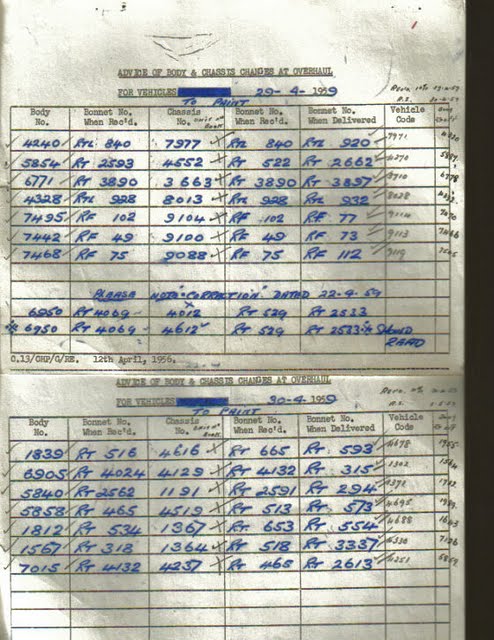 ADVICE OF BODY & CHASSIS CHANGES AT OVERHAUL
FOR VEHICLES 29-4-1959
TO PAINT
Body No. Bonnet No. When Rec'd. Chassis No. Bonnet No. When Rec'd. Bonnet No. When Delivered Vehicle Code
4240 RTL 840 7977 RTL 840 RTL 920 7971
5854 RT 2593 4552 RT 522 RT 2662 4270
6771 RT 3890 3663 RT 3890 RT 3897 3710
4328 RTL 928 8013 RTL 928 RTL 932 8028
7495 RF 102 9104 RF 102 RF 77 9114
7442 RF 49 9100 RF 49 RF 73 9113
7468 RF 75 9088 RF 75 RF 112 9119
PLEASE NOTE "CORRECTION" DATED 22-4-59
6950 RT 4069 4012 RT 529 RT 2533
6950 RT 4069 4612 RT 529 RT 2533 SHOULD READ
C.13/CHP/G/RE. 12th April, 1956.
ADVICE OF BODY & CHASSIS CHANGES AT OVERHAUL
FOR VEHICLES 30-4-1959
TO PAINT
Body No. Bonnet No. When Rec'd. Chassis No. Bonnet No. When Rec'd. Bonnet No. When Delivered Vehicle Code
1839 RT 516 4616 RT 665 RT 593 4678
6905 RT 4024 4129 RT 4132 RT 315 1302
5840 RT 2562 1191 RT 2591 RT 294 4371
5858 RT 465 4519 RT 513 RT 573 4695
1812 RT 534 1367 RT 653 RT 554 4688
1567 RT 318 1364 RT 518 RT 3337 4530
7015 RT 4132 4237 RT 465 RT 2613 4251